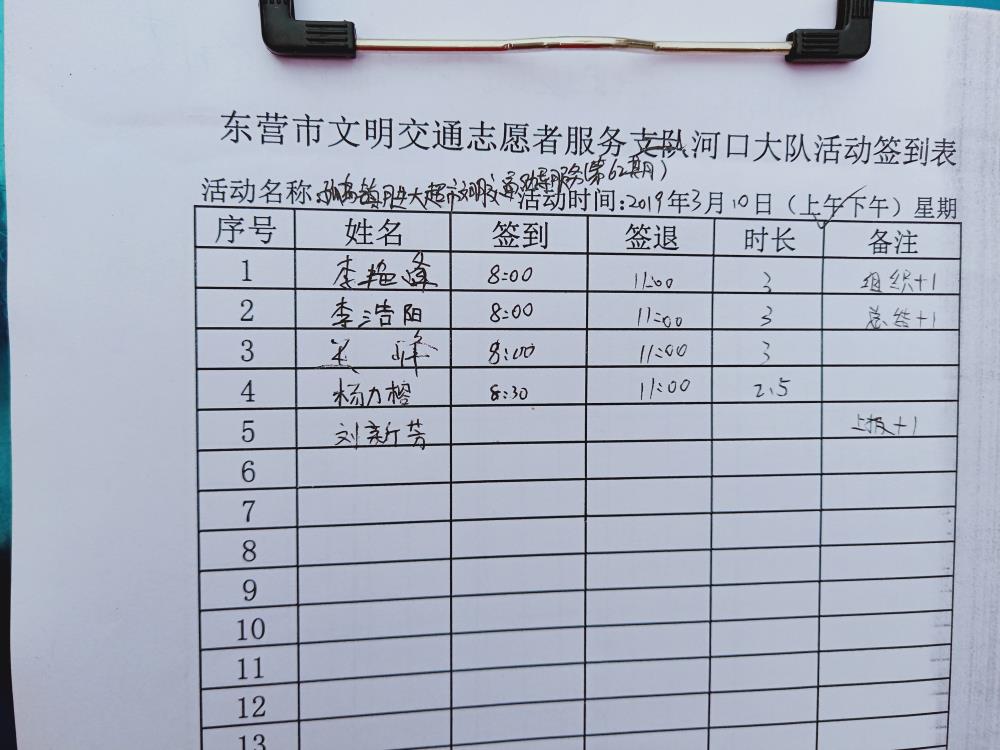 东营市文明交通志愿者服务支队河口大队活动签到表
活动名称:大超市文明交通劝导服务(第62期) 活动时间:2019年3月10日（上午下午）星期
序号 姓名 签到 签退 时长 备注
1 李艳峰 8:00 11:00 3 组织+1
2 李浩阳 8:00 11:00 3 总结+1
3 峰 8:00 11:00 3
4 杨力榕 8:30 11:00 2.5
5 刘新芳 上报+1
6
7
8
9
10
11
12
13